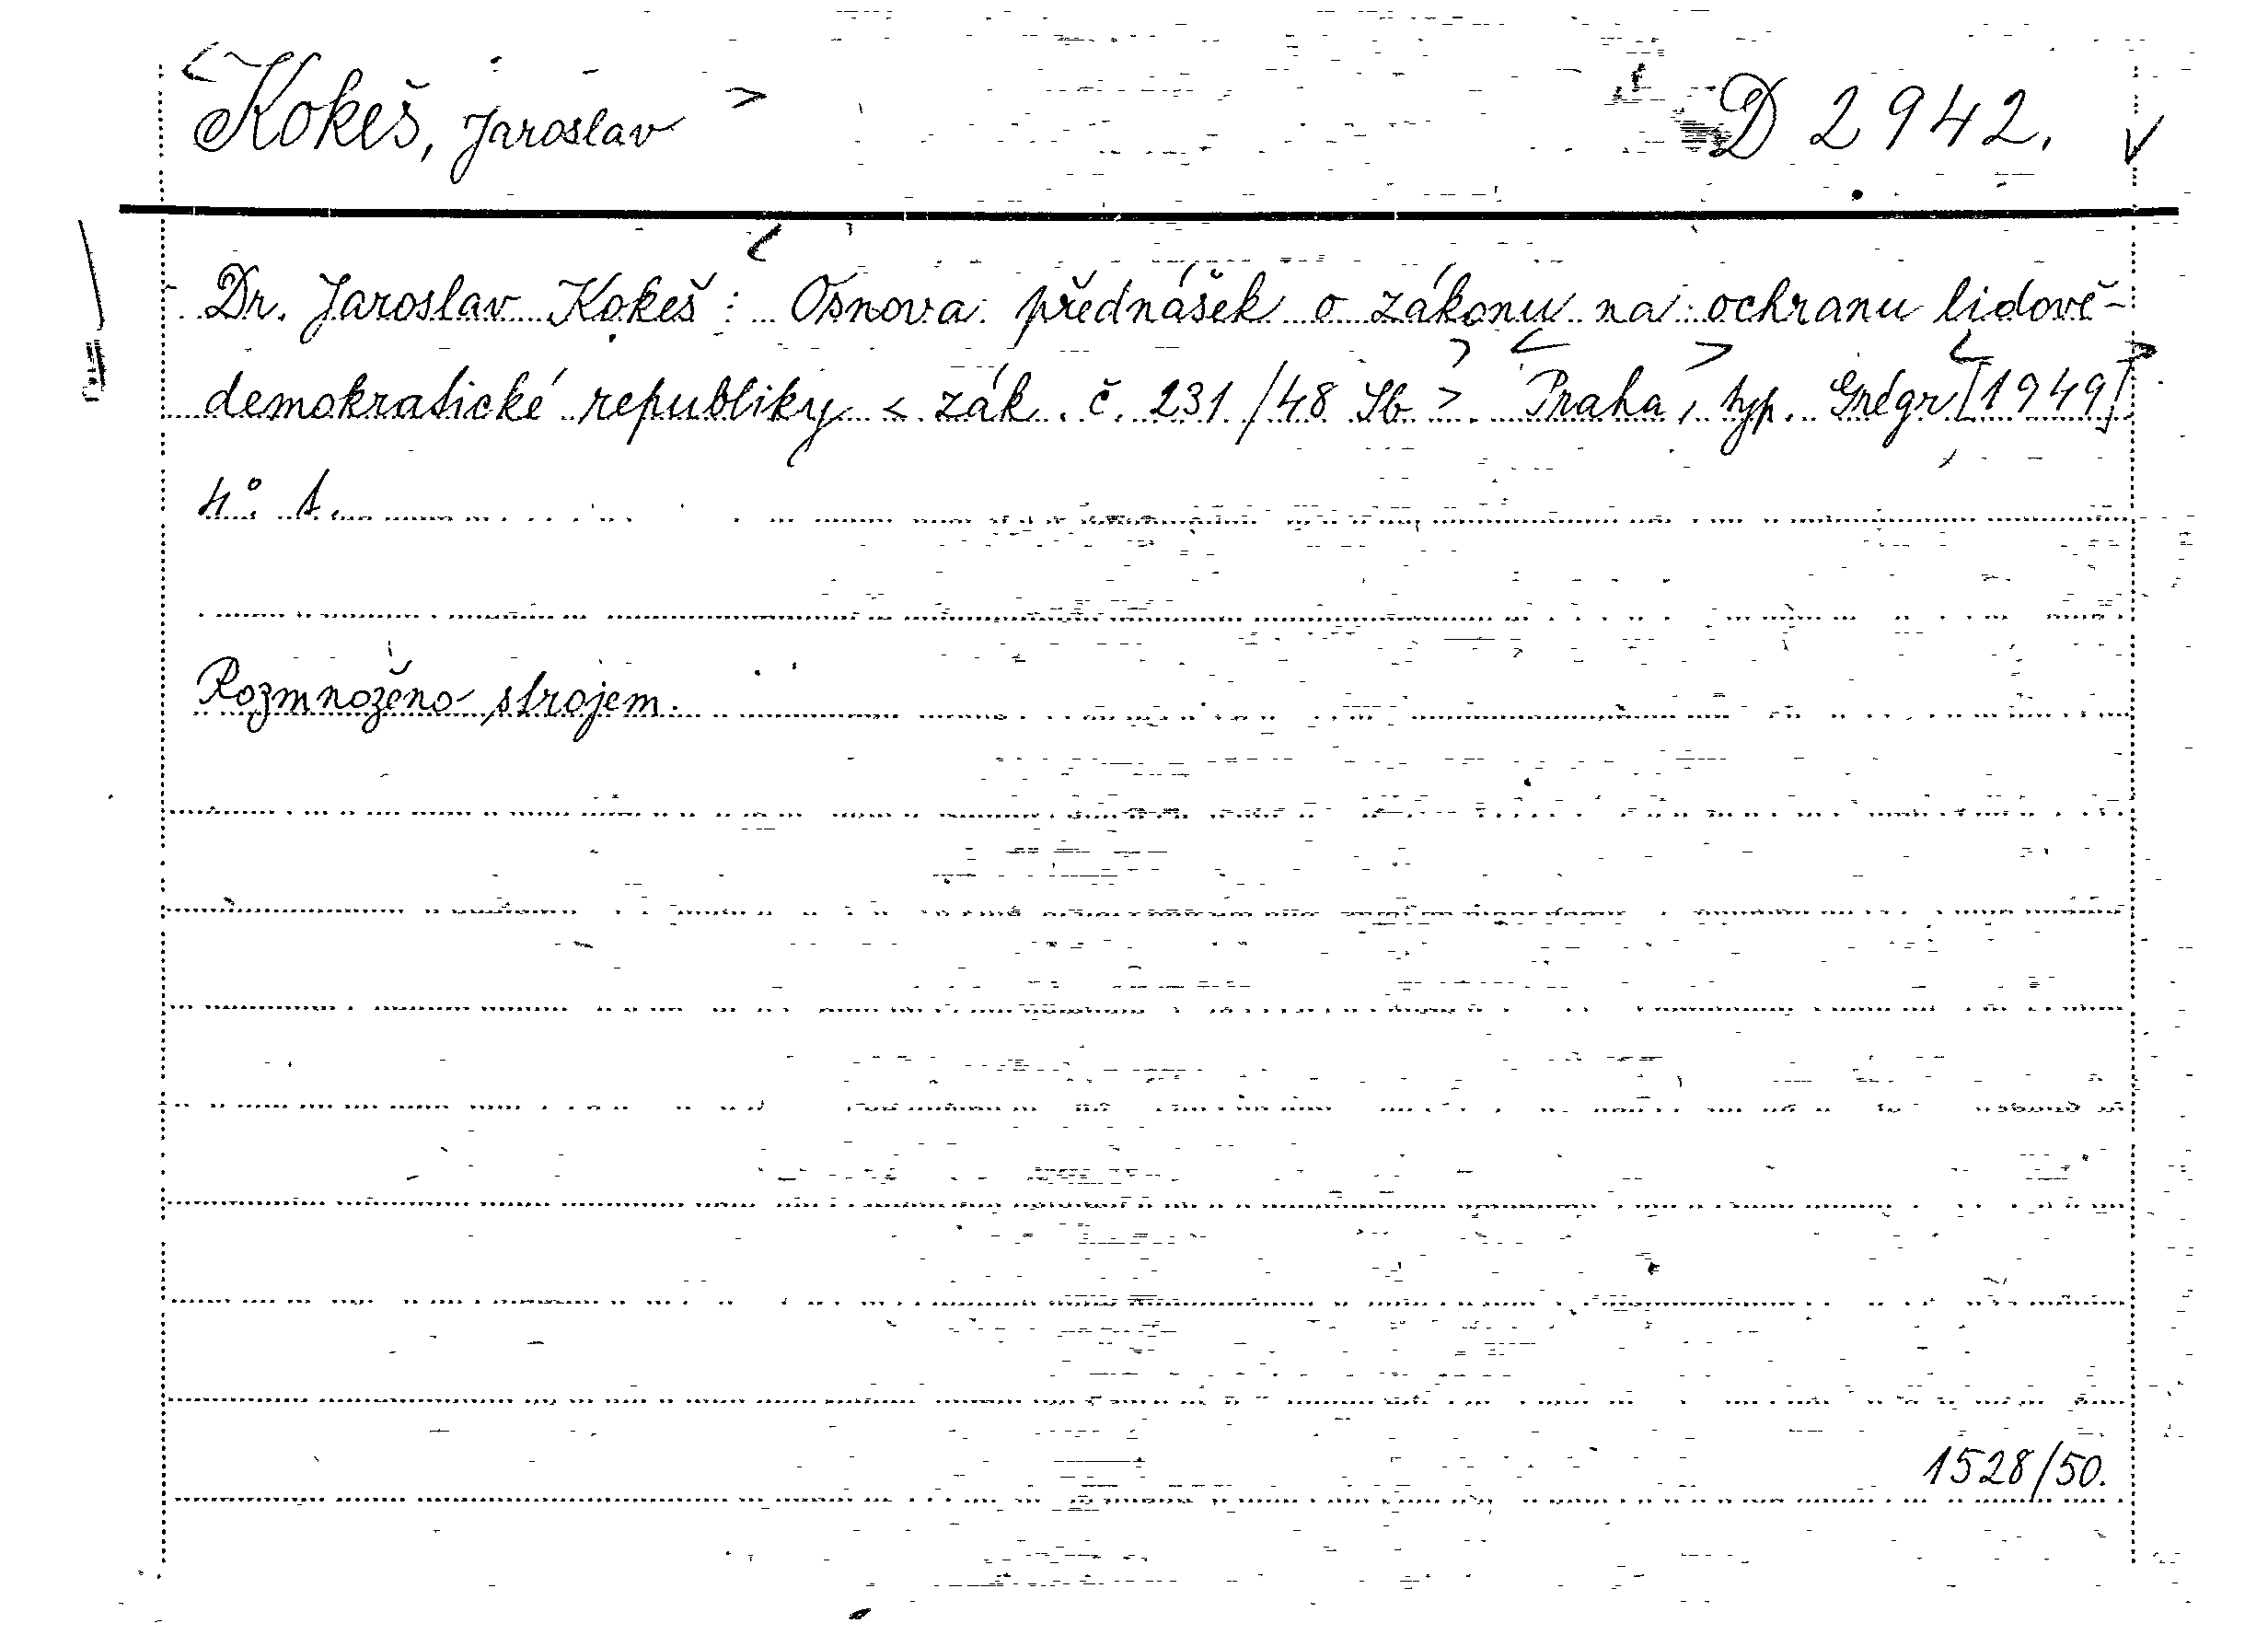 Kokeš, Jaroslav D 2942.
Dr. Jaroslav Kokeš: Osnova přednášek o zákonu na ochranu lidově-
demokratické republiky < zák. č. 231/48 Sb >. Praha, typ. Grégr [1949]
4°. s.
Rozmnoženo strojem.
1528/50.